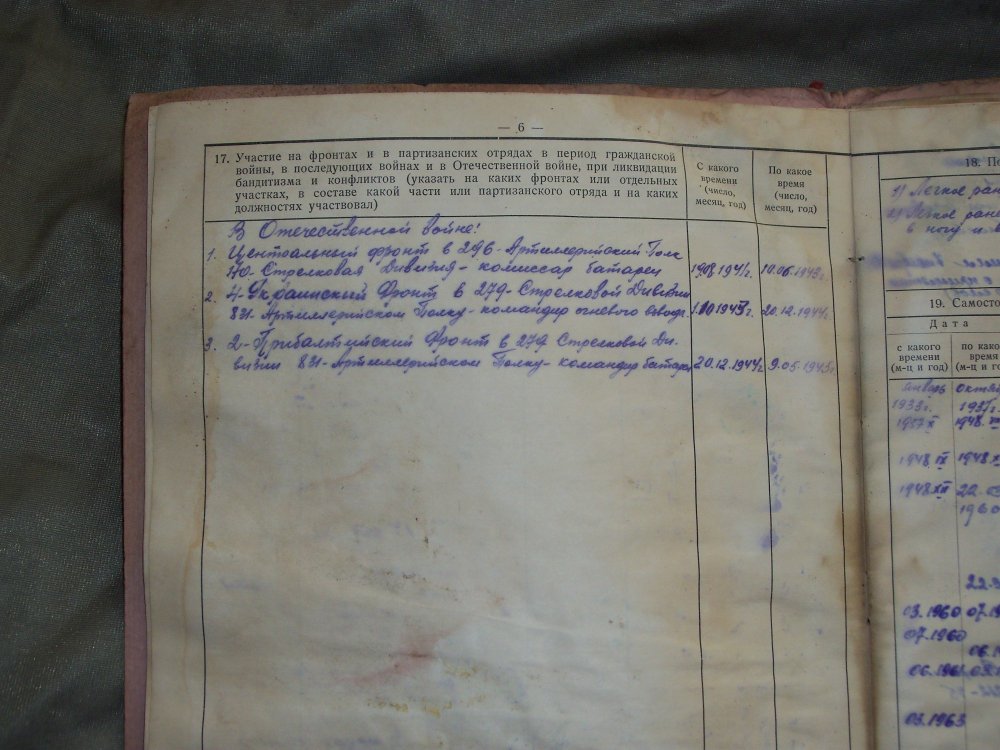 — 6 —
17. Участие на фронтах и в партизанских отрядах в период гражданской
войны, в последующих войнах и в Отечественной войне, при ликвидации
бандитизма и конфликтов (указать на каких фронтах или отдельных
участках, в составе какой части или партизанского отряда и на каких
должностях участвовал)
С какого
времени
(число,
месяц, год)
По какое
время
(число,
месяц, год)
В Отечественной войне:
1. Центральный фронт в 296-Артиллерийский Полк
Стрелковая Дивизия - комиссар батареи 1941г. 10.06.1943г.
2. 4-Украинский Фронт в 279-Стрелковой Дивизии
831-Артиллерийском Полку - командир огневого взвода 20.12.1944г.
3. 2-Прибалтийский Фронт в 279 Стрелковой Ди-
визии 831-Артиллерийском Полку - командир батареи 20.12.1944г. 9.05.1945г.
18. По
1) Легкое ран
2) Легкое ране
в ногу и
19. Самосто
Дата
с какого
времени
(м-ц и год)
по како
время
(м-ц и го
Январь октя
1933г. 193
1937 X 1948
1948 IX 1948
1948 XII 22.
1960
22.
03.1960 07.1
07.1960
06.1
06.196
03.1963